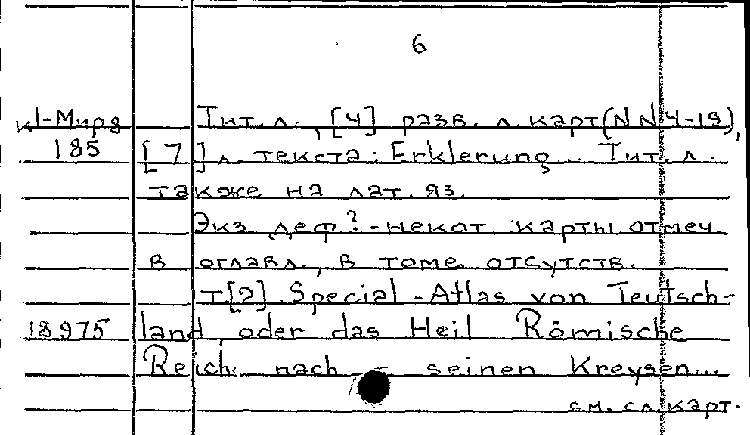 6
к1-Мира Тит. л., [4] разв. л. карт (NN 4-19),
185 [7] л. текста: Erklerung... Тит. л.
также на лат. яз.
Экз. деф? - некот. карты отмеч.
в оглавл., в томе отсутств.
Т[2] Special-Atlas von Teutsch-
18975 land oder das Heil Römische
Reich nach seinen Kreysen...
см. сл. карт.